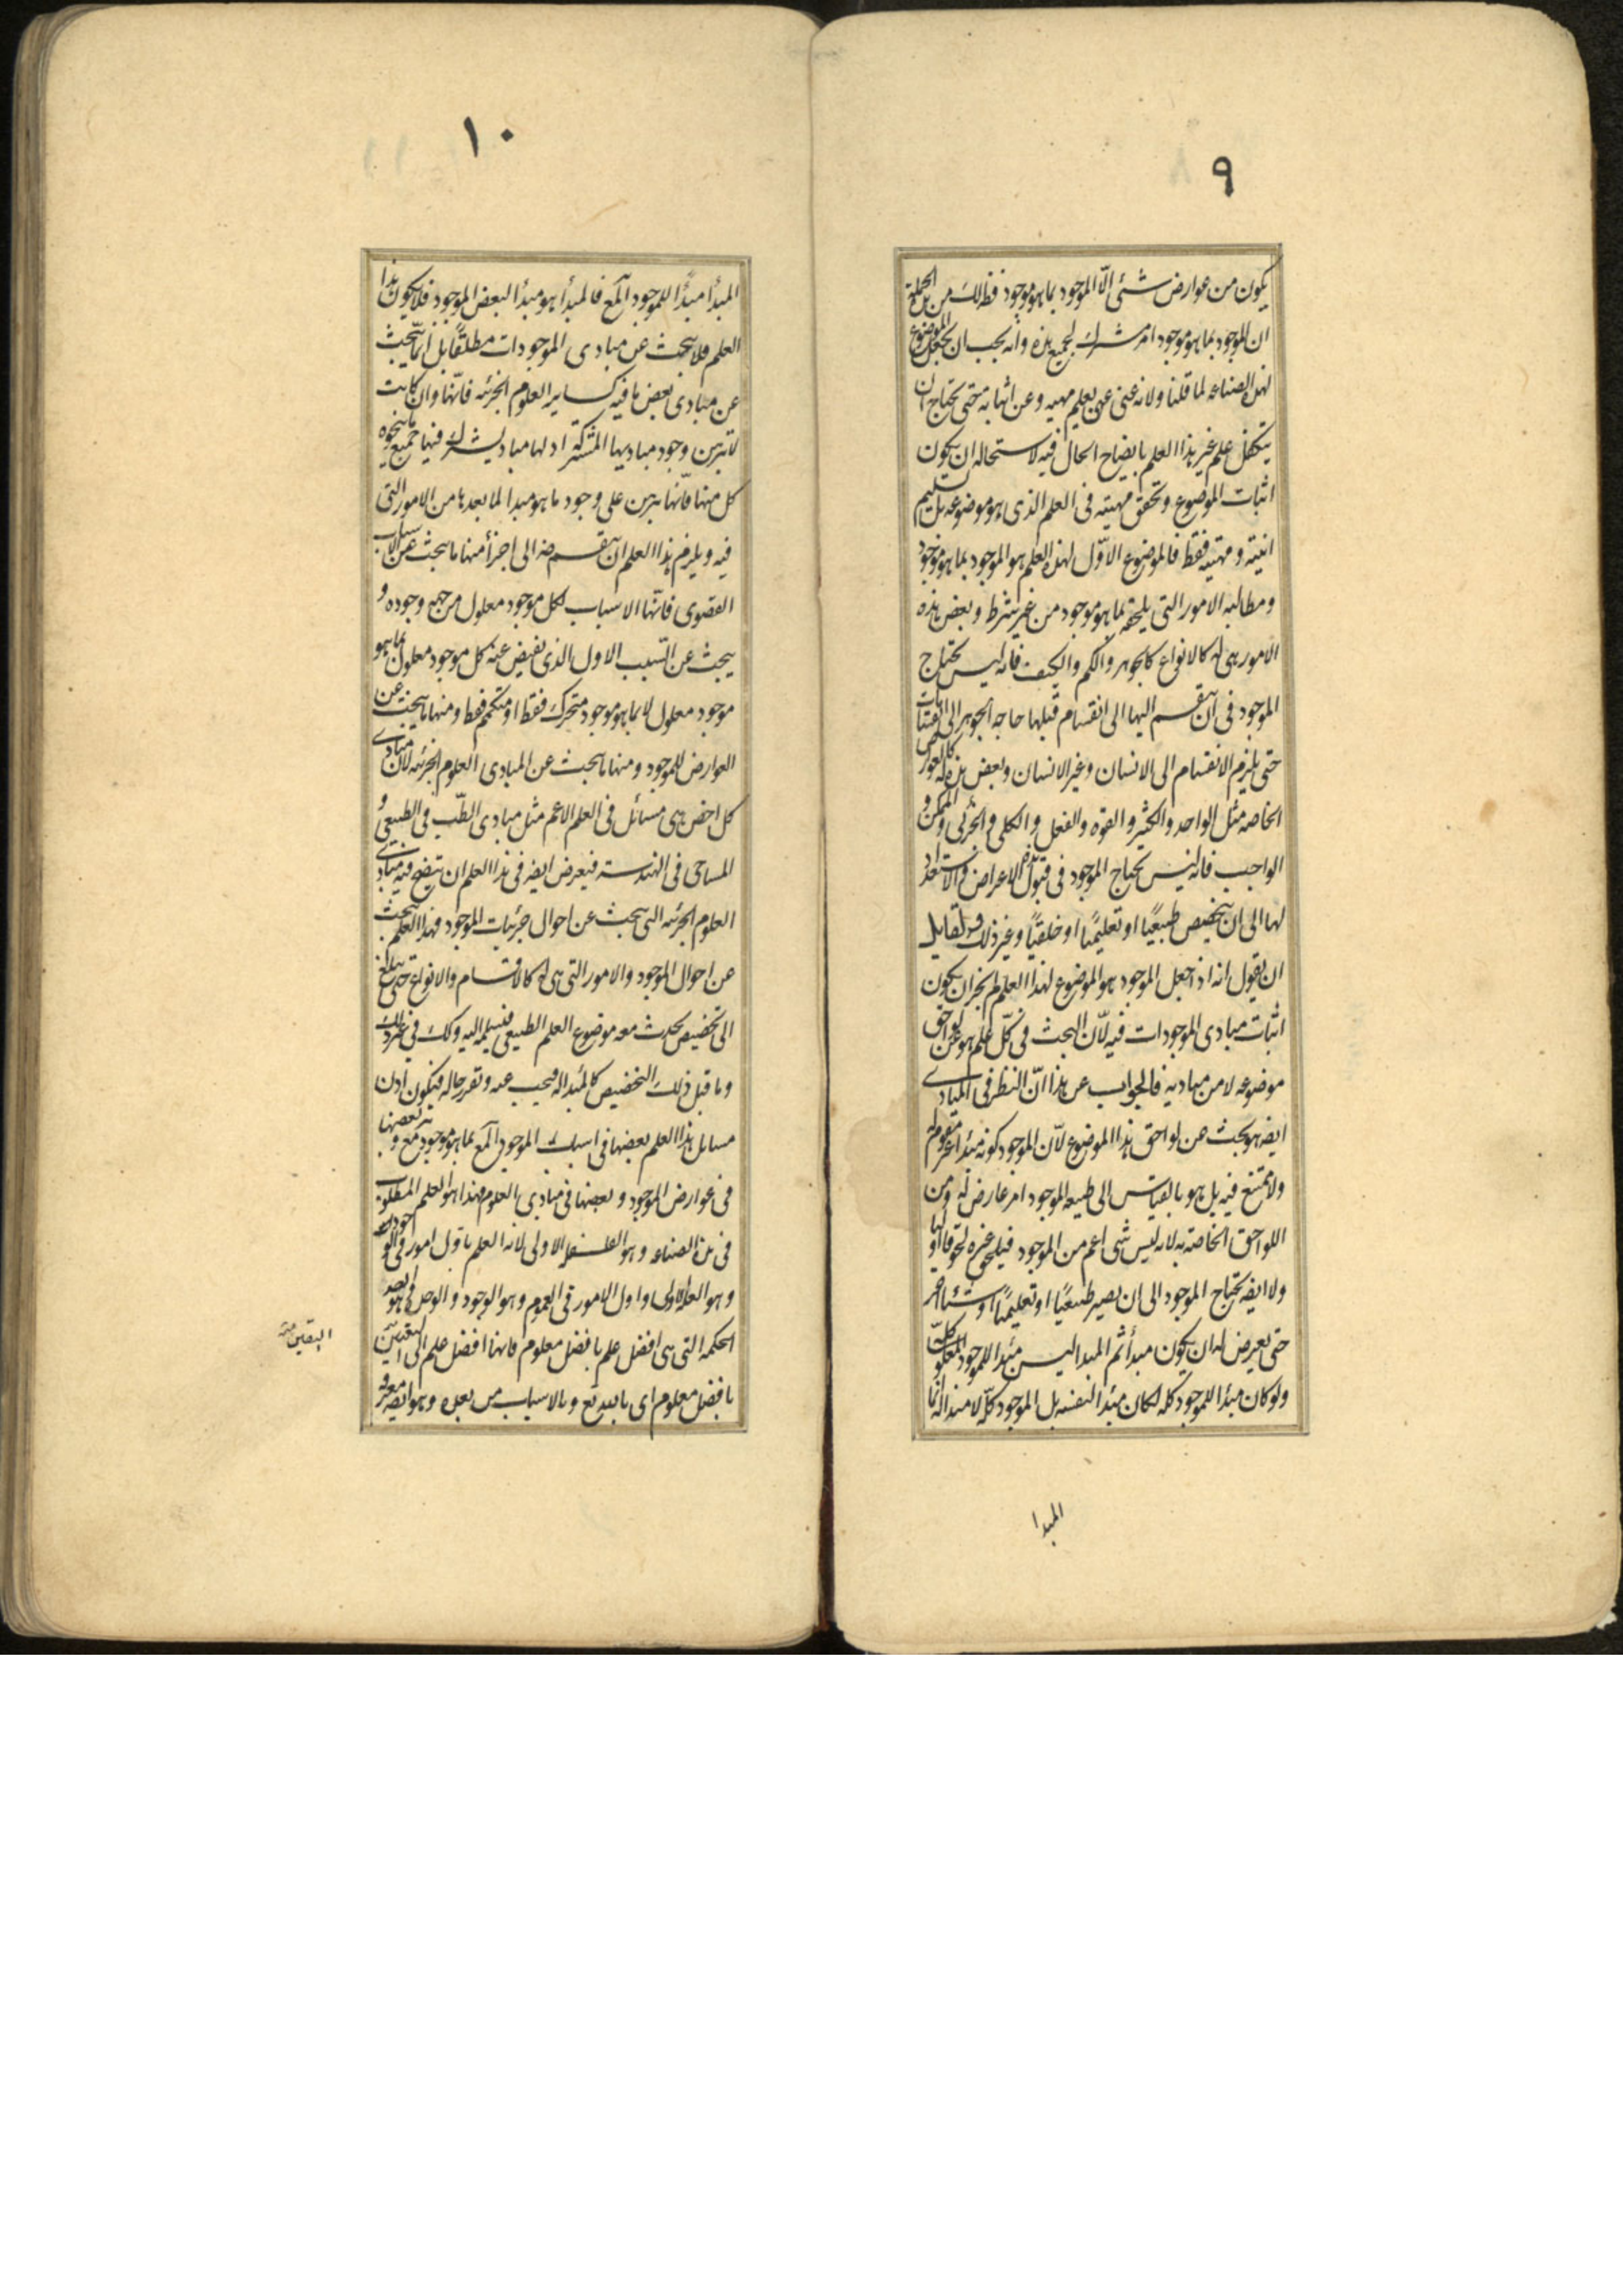 ٩
يكون من عوارض شئ الّا الموجود بما هو موجود فظ لك من هذه الجملة
ان الموجود بما هو موجود امر مشترك لجميع هذه وانه يجب ان يجعل الموضوع
لهذه الصناعه لما قلنا ولانه غنى عن تعليم مهيته وعن اثباته حتى يحتاج ان
يتكفل علم غير هذا العلم بايضاح الحال فيه لاستحاله ان يكون
اثبات الموضوع وتحقق مهيته فى العلم الذى هو موضوعه بل تسليم
انيته ومهيته فقط فالموضوع الاوّل لهذا العلم هو الموجود بما هو موجود
ومطالبه الامور التى يلحقه بما هو موجود من غير شرط وبعض هذه
الامور هى له كالانواع كالجوهر والكم والكيف فانه ليس يحتاج
الموجود فى ان ينقسم اليها الى انقسام قبلها حاجه الجوهر الى انقسامات
حتى يلزم الانقسام الى الانسان وغير الانسان وبعض هذه له كالعوارض
الخاصه مثل الواحد والكثير والقوه والفعل والكلى والجزئى والممكن و
الواجب فانه ليس يحتاج الموجود فى قبول هذه الاعراض والاستعداد
لها الى ان يتخصص طبيعيًا او تعليميًا او خلقيًا وغير ذلك ولقايل
ان يقول انه اذا جعل الموجود هو الموضوع لهذا العلم لم يجز ان يكون
اثبات مبادى الموجودات فيه لانّ البحث فى كلّ علم هو عن لواحق
موضوعه لا من مباديه فالجواب عن هذا انّ النظر فى المبادى
ايضه هو بحث عن لواحق هذا الموضوع لانّ الموجود كونه مبدأ غير مقوم له
ولا ممتنع فيه بل هو بالقياس الى طبيعه الموجود امر عارض له ومن
اللواحق الخاصه به لانه ليس شى اعم من الموجود فيلحق غيره لحوقا اوليا
ولا ايضه يحتاج الموجود الى ان يصير طبيعيًا او تعليميًا او شيئا اخر
حتى يعرض له ان يكون مبدأ ثم المبدا ليس مبدا للموجود كله
ولو كان مبدا للموجود كله لكان مبدا لنفسه بل الموجود كلّه لا مبدا له انما
المبدا
١٠
المبدأ مبدًا للموجود المع فالمبدأ هو مبدأ لبعض الموجود فلا يكون هذا
العلم فلا يبحث عن مبادى الموجودات مطلقًا بل انما يبحث
عن مبادى بعض ما فيه كساير العلوم الجزئيه فانّها وان كانت
لا تبرهن وجود مباديها المشتركة اذ لها مباد يشترك فيها جميع ما ينحوه
كل منها فانّها تبرهن على وجود ما هو مبدا لما بعدها من الامور التى
فيه ويلزم هذا العلم ان ينقسم ضه الى اجزأ منها ما يبحث عن الاسباب
القصوى فانّها الاسباب لكل موجود معلول من جهه وجوده و
يبحث عن السّبب الاول الذى يفيض عنه كل موجود معلول بما هو
موجود معلول لا بما هو موجود متحرك فقط او متكمم فقط ومنها ما يبحث عن
العوارض للموجود ومنها ما يبحث عن المبادى العلوم الجزئيه لان مبادى
كل اخص هى مسائل فى العلم الاعم مثل مبادى الطّب فى الطبيعى و
المساحى فى الهندسة فيعرض ايضه فى هذا العلم ان يتضح فيه مبادى
العلوم الجزئيه التى يبحث عن احوال جزئيات الموجود فهذا العلم يبحث
عن احوال الموجود والامور التى هى له كالاقسام والانواع حتى يبلغ
الى تخصيص يحدث معه موضوع العلم الطبيعى فيسلمه اليه وكك فى غير ذلك
وما قبل ذلك التخصيص كالمبدا له فيجب عنه وتقرر حاله فيكون اذن
مسايل هذا العلم بعضها فى اسباب الموجود المع بما هو موجود مع وبعضها
فى عوارض الموجود وبعضها فى مبادى العلوم فهذا هو العلم المطلوب
فى هذه الصناعه وهو الفلسفه الاولى لانه العلم باول امور فى الوجود
وهو العله الاولى واول الامور فى العموم وهو الوجود والوحده وهو ايضه
الحكمه التى هى افضل علم بافضل معلوم فانها افضل علم اى اليقين
بافضل معلوم اى بالله تع وبالاسباب من بعده وهو ايضه معرفه
اليقين منه